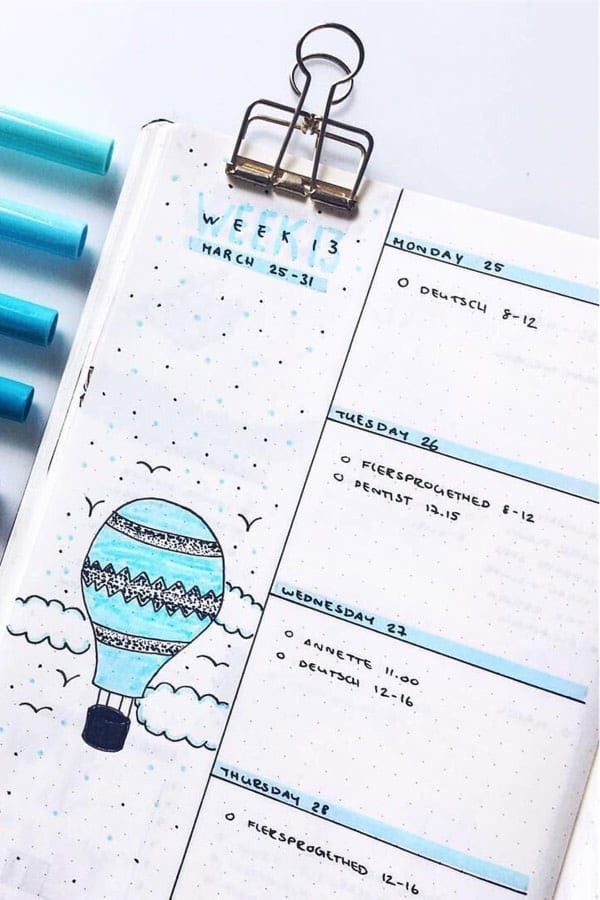 WEEK 13
MARCH 25-31
MONDAY 25
DEUTSCH 8-12
TUESDAY 26
FLERSPROGETHED 8-12
DENTIST 12.15
WEDNESDAY 27
ANNETTE 11.00
DEUTSCH 12-16
THURSDAY 28
FLERSPROGETHED 12-16